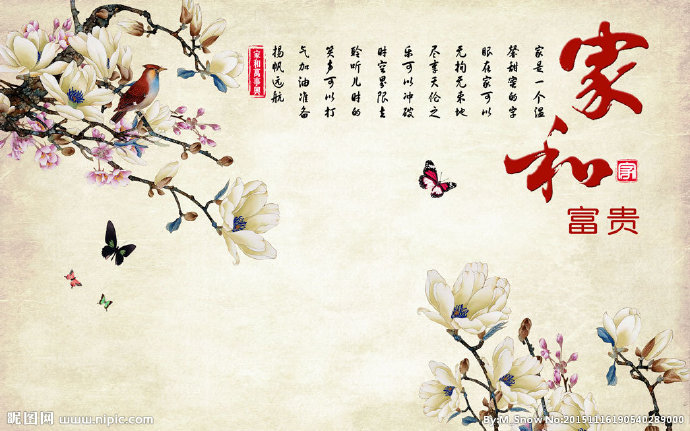 家和
家
富贵
家是一个温
馨甜蜜的字
眼在家可以
无拘无束地
尽享天伦之
乐可以冲破
时空界限去
聆听儿时的
笑声可以打
气加油准备
扬帆远航
家和万事兴
昵图网 www.nipic.com
By:M_Snow No:20151116190540289000